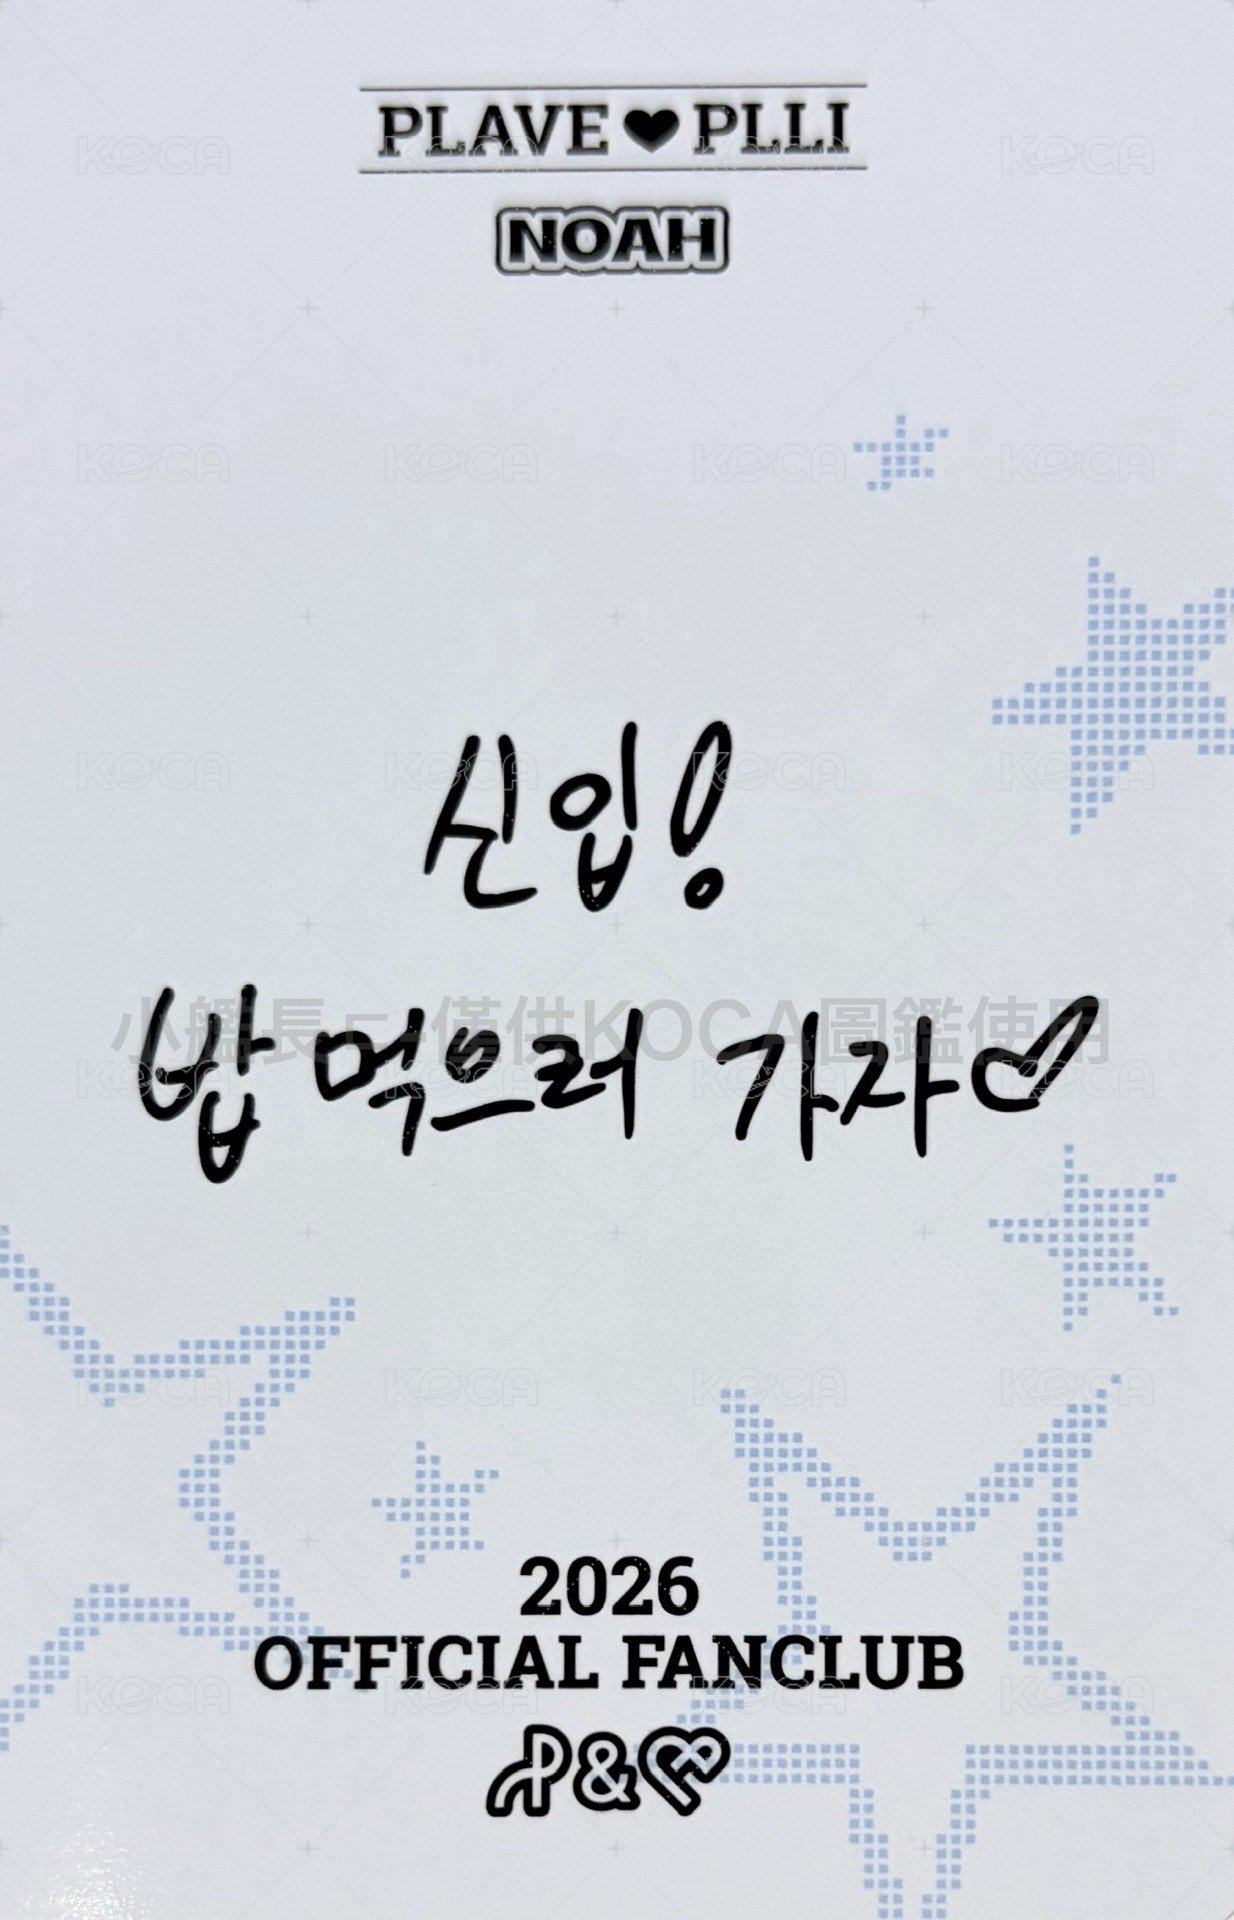 PLAVE♥PLLI
NOAH
신입!
밥 먹으러 가자♡
小艦長┌-僅供KOCA圖鑑使用
2026
OFFICIAL FANCLUB
P&P
KOCA